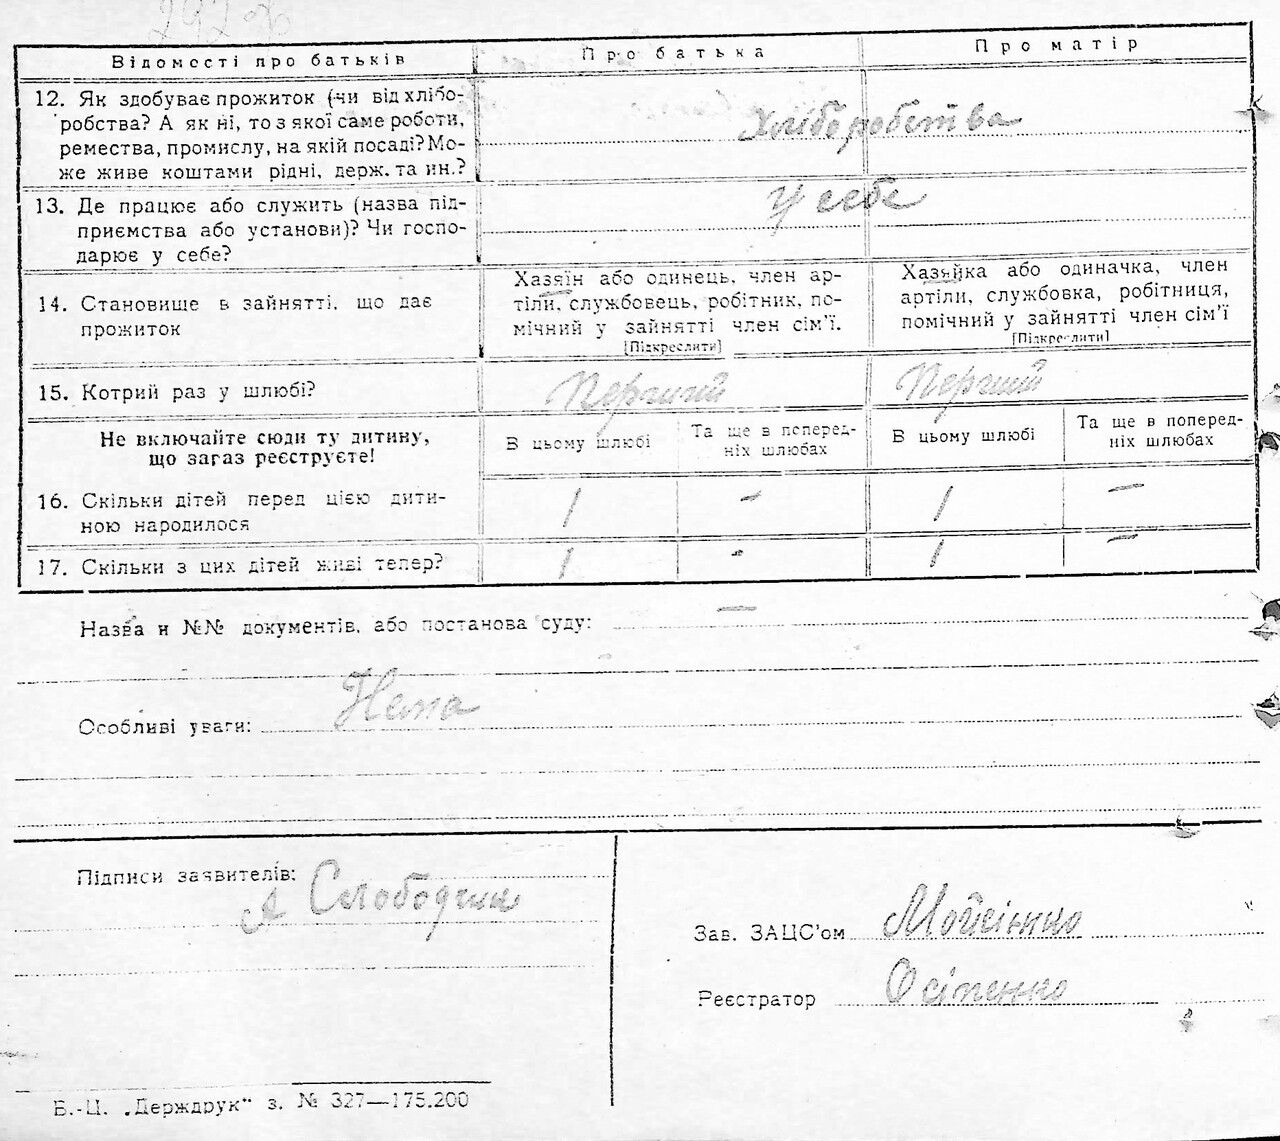 292
Відомості про батьків Про батька Про матір
12. Як здобуває прожиток (чи від хлібо-
робства? А як ні, то з якої саме роботи,
ремества, промислу, на якій посаді? Мо-
же живе коштами рідні, держ. та ин.?
Хліборобства
13. Де працює або служить (назва під-
приємства або установи)? Чи госпо-
дарює у себе?
У себе
14. Становище в зайнятті, що дає
прожиток
Хазяїн або одинець, член ар-
тіли, службовець, робітник, по-
мічний у зайнятті член сім'ї.
[Підкреслити]
Хазяйка або одиначка, член
артіли, службовка, робітниця,
помічний у зайнятті член сім'ї
[Підкреслити]
15. Котрий раз у шлюбі? Перший Перший
Не включайте сюди ту дитину,
що зараз реєструєте!
В цьому шлюбі
Та ще в поперед-
ніх шлюбах
В цьому шлюбі
Та ще в поперед-
ніх шлюбах
16. Скільки дітей перед цією дити-
ною народилося
1 - 1 -
17. Скільки з цих дітей живі тепер? 1 - 1 -
Назва и №№ документів, або постанова суду: —
Особливі уваги: Нема
Підписи заявителів:
А Слободчик
Зав. ЗАЦС'ом Мойсієнко
Реєстратор Осіпенко
Б.-Ц. „Держдрук" з. № 327—175.200